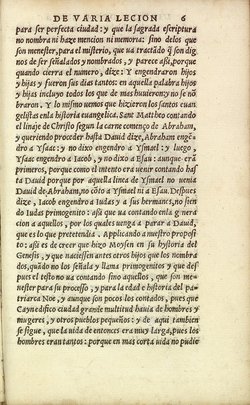 DE VARIA LECION 6
para ser perfecta ciudad: y que la sagrada escriptura
no nombra ni haze mencion ni memoria: sino delos que
son menester, para el misterio, que ua tractãdo q̃ son dig
nos de ser señalados y nombrados, y parece assi, porque
quando cierra el numero, dize: Y engendraron hijos
y hijas y fueron sus dias tantos: en aquella palabra hijos
y hijas incluyo todos los que de mas huuieron: y no los
conto. Y lo mismo uemos que hizieron los santos euan
gelistas enla hystoria euangelica. San Mattheo contando
el linaje de Christo segun la carne començo de Abraham,
y queriendo proceder hasta Dauid dize, Abraham engẽ
dra a Ysaac: y no dixo engendro a Ysmael: y luego,
Ysaac engendro a Iacob, y no dixo a Esau: aunque erã
primeros, porque como el intento era uenir contando has
ta Dauid porque por aquella linea de Ysmael no uenia
Dauid de Abraham, no cõto a Ysmael ni a Esau. Despues
dize, Iacob engendro a Iudas y a sus hermanos, no siẽn
do Iudas primogenito: assi que ua contando enla g̃nera
cion a aquellos, por los quales uenga a parar a Dauid,
que es lo que pretendia. Applicando a nuestro proposi
to: assi es de creer que hizo Moysen en su hystoria del
Genesis, y que naciessen antes otros hijos que los nombra
dos, quãdo no los señala y llama primogenitos y que des
pues el testo no ua contando sino aquellos, que son me-
nester para su processo, y para la edad e historia del pa-
triarca Noe, y aunque son pocos los contados, pues que
Cayn edifico ciudad grande multitud hauia de hombres y
mugeres, y otros pueblos pequeños: y de aqui tambien
se sigue, que la uida de entonces era muy larga, pues los
hombres eran tantos: porque en mas corta uida no pudie